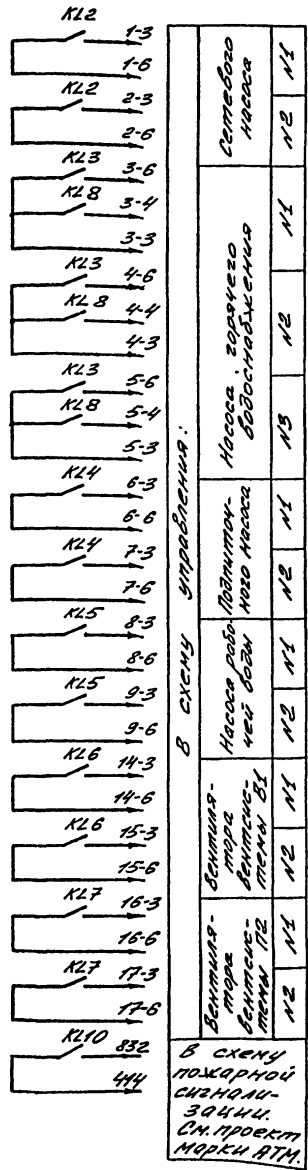 KL2
1-3
1-6
KL2
2-3
2-6
KL3
3-6
KL8
3-4
3-3
KL3
4-6
KL8
4-4
4-3
KL3
5-6
KL8
5-4
5-3
KL4
6-3
6-6
KL4
7-3
7-6
KL5
8-3
8-6
KL5
9-3
9-6
KL6
14-3
14-6
KL6
15-3
15-6
KL7
16-3
16-6
KL7
17-3
17-6
KL10
832
414
В схему управления:
Сетевого
насоса
N1
N2
Насоса горячего
водоснабжения
N1
N2
N3
Подпиточ-
ного насоса
N1
N2
Насоса рабо-
чей воды
N1
N2
Вентиля-
тора
вентсис-
темы В1
N1
N2
Вентиля-
тора
вентсис-
темы П2
N1
N2
В схему
пожарной
сигнали-
зации.
См. проект
марки АТМ.